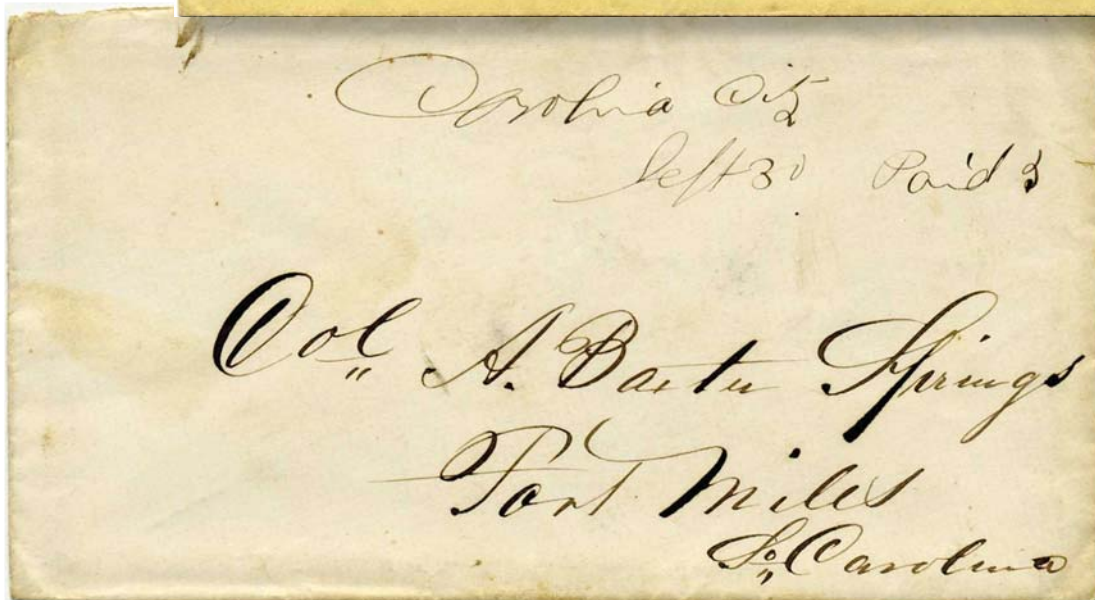 Carolina City
Sept 30 Paid 3
Col,, A. Baxter Springs
Fort Mills
So,, Carolina